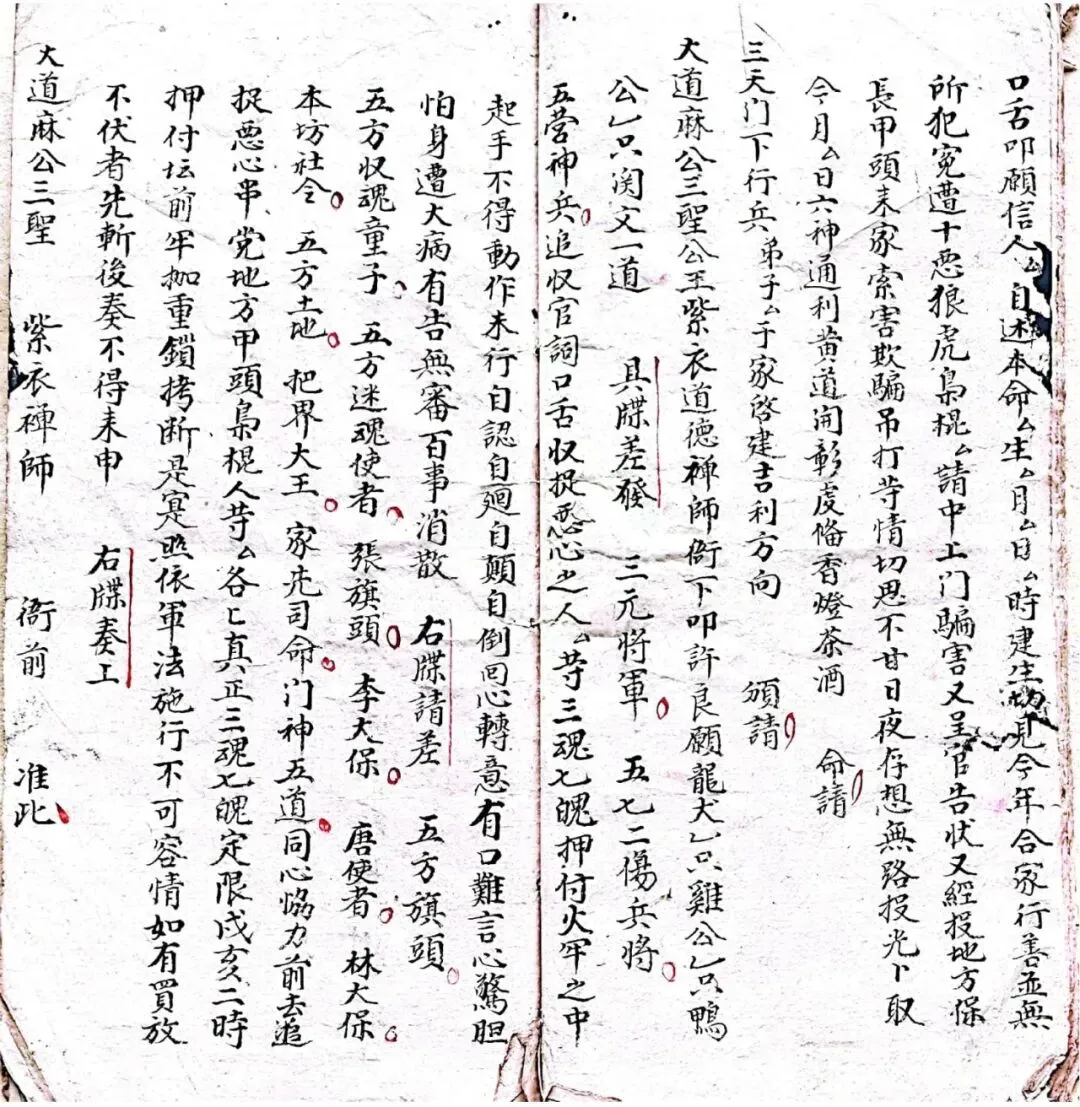 口舌叩願信人厶自述本命厶生厶月厶日厶時建生切見今年合家行善並無
所犯冤遭十悪狼虎梟棍厶請中上门騙害又呈官告状又經投地方保
長甲頭来家索害欺騙吊打䒭情切思不甘日夜存想無路投光卜取
今月厶日六神通利黄道開彰虔俻香燈茶酒 命請
三天门下行兵弟子厶于家啓建吉利方向 頒請
大道麻公三聖公王紫衣道德禅師衙下叩許良願龍犬乚只雞公乚只鴨
公乚只関文一道 具牒差發 三元将軍 五七二傷兵将
五营神兵追収官詞口舌収捉悪心之人厶䒭三魂七魄押付火牢之中
起手不得動作未行自認自廻自顛自倒囬心轉意有口難言心驚胆
怕身遭大病有告無審百事消散 右牒請差 五方旗頭
五方収魂童子 五方迷魂使者 張旗頭 李大保 唐使者 林大保
本坊社令 五方土地 把界大王 家先司命 门神五道同心協力前去追
捉悪心串党地方甲頭梟棍人䒭厶各匕真正三魂七魄定限戌亥二時
押付坛前牢枷重鎖拷断是寔照依軍法施行不可容情如有買放
不伏者先斬後奏不得来申 右牒奏上
大道麻公三聖 紫衣禅師 衙前 准此